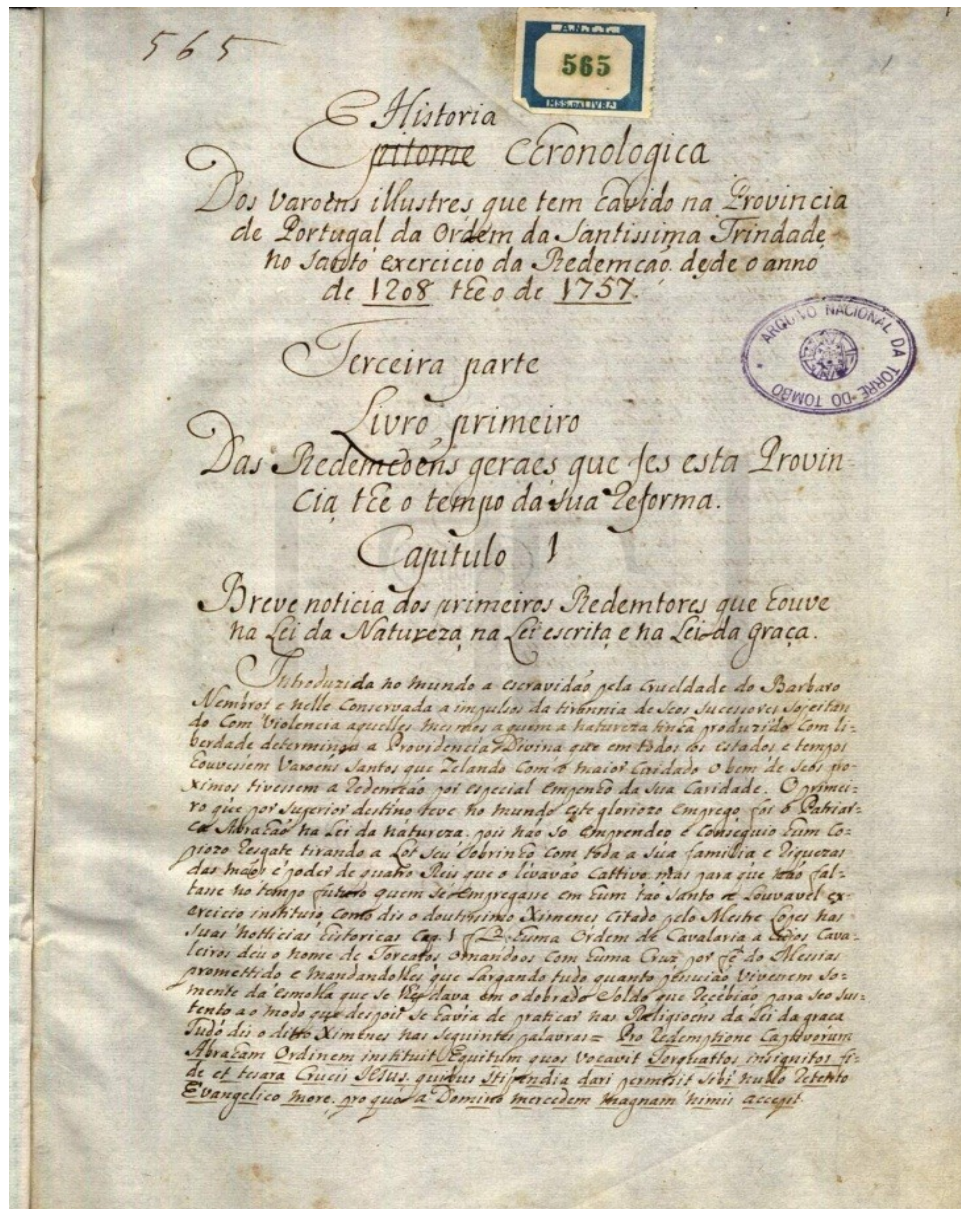 565
A.N.T.T.
565
MSS. DA LIVRA
1
Historia
Epitome Chronologica
Dos Varoens illustres que tem havido na Provincia
de Portugal da Ordem da Santissima Trindade
no santo exercicio da Redemcaõ dede o anno
de 1208 thé o de 1757.
ARQUIVO NACIONAL DA TORRE DO TOMBO
Terceira parte
Livro primeiro
Das Redemcoens geraes que fes esta Provin-
cia the o tempo da sua Reforma.
Capitulo 1
Breve noticia dos primeiros Redemtores que houve
na Lei da Natureza, na Lei escrita, e na Lei da graça.
Introduzida no mundo a escravidaõ pela crueldade do Barbaro
Nembrot e nelle conservada a impulsos da tirannia de seos sucessores sojeitan
do com violencia aquelles mesmos a quem a natureza tinha produzido com li-
berdade determinou a Providencia Divina que em todos os estados e tempos
houvessem Varoens Santos que zelando com o maior cuidado o bem de seos pro-
ximos tivessem a Redemcaõ por especial empenho da sua Caridade. O primei-
ro que por superior destino teve no mundo este gloriozo emprego foi o Patriar-
ca Abrahaõ na Lei da natureza, pois naõ só emprendeo e conseguio hum co-
piozo resgate tirando a Lot seu sobrinho com toda a sua familia e riquezas
das maõs e poder de quatro Reis que o levavaõ cattivo mas para que naõ fal-
tase no tempo futuro quem se empregasse em hum taõ santo e louvavel ex-
ercicio instituio, como dis o doutissimo Ximenes citado pelo Mestre Lopes nas
suas notticias historicas Cap. 1 huma Ordem de Cavalaria a cujos Cava-
leiros deu o nome de Torcatos ornandoos com huma Cruz por fé do Messias
promettido e mandandolhes que largando tudo quanto possuiaõ vivessem so-
mente da esmolla que se lhes dava em o dobrado soldo que recebiaõ para seo sus-
tento ao modo que despois se havia de praticar nas Religioens da Lei da graca
Tudo dis o ditto Ximenes nas seguintes palavras = Pro Redemptione Captivorum
Abraham Ordinem instituit Equitum quos vocavit Torquattos insignitos fi-
de et tesara Crucis Jesus, quibus stipendia dari permisit sibi nullo retento
Evangelico more, pro quo a Domino mercedem magnam nimis accepit.